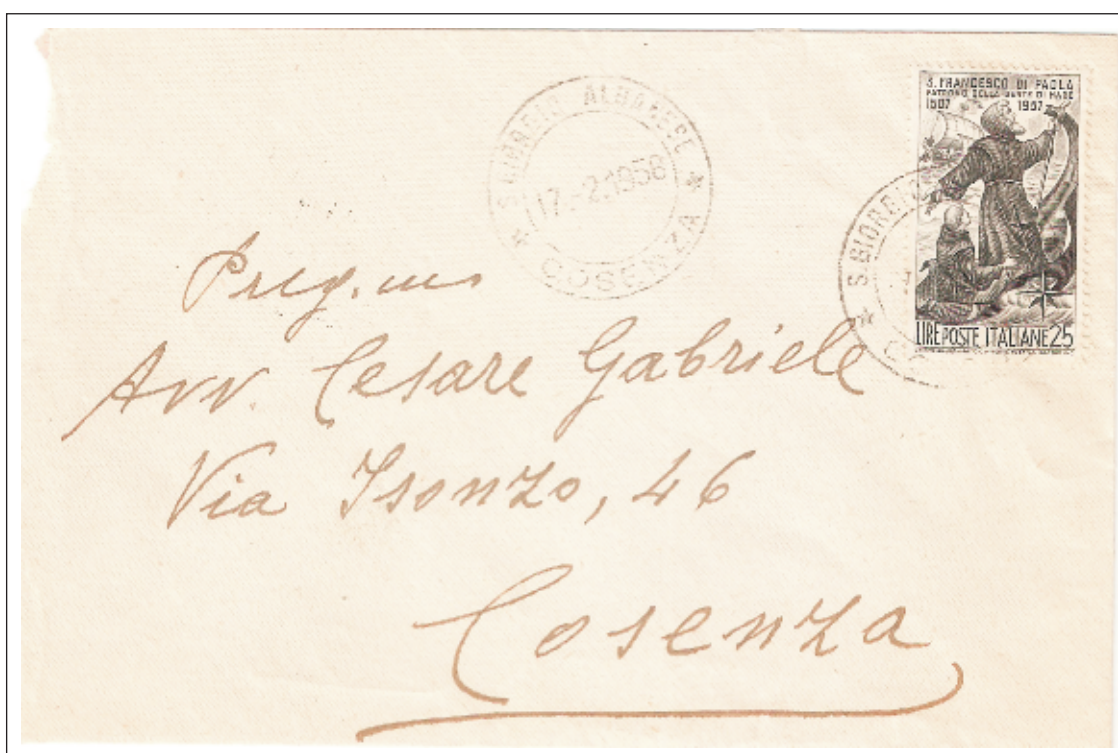 S. GIORGIO ALBANESE
17.-2.1958
COSENZA
S. FRANCESCO DI PAOLA
PATRONO DELLA GENTE DI MARE
1507 1957
S. GIORGIO
LIRE POSTE ITALIANE 25
Preg.mo
Avv. Cesare Gabriele
Via Isonzo, 46
Cosenza